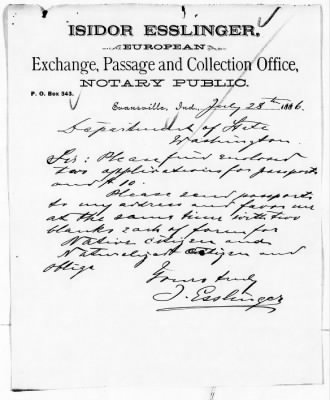 ISIDOR ESSLINGER,
EUROPEAN
Exchange, Passage and Collection Office,
NOTARY PUBLIC.
P. O. Box 343.
Evansville, Ind., July 28th 1886.
Department of State
Washington
Sir: Please find enclosed
two applications for passports
and $10.
Please send passports
to my address and favor me
at the same time with two
blanks each of form for
Native citizen and
Naturalized citizen and
oblige
Yours truly
I. Esslinger